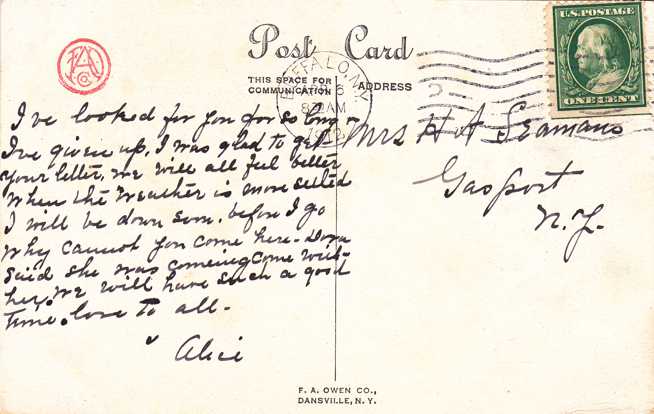 FAO Co.
Post Card
THIS SPACE FOR
COMMUNICATION
ADDRESS
BUFFALO, N.Y.
8 AM
1912
U.S. POSTAGE
ONE CENT
I've looked for you for so long
I've given up, I was glad to get
your letter, we will all feel better
when the weather is more settled
I will be down soon, before I go
why cannot you come here - Dora
said she was comeing come with
her. We will have such a good
time. love to all -
Alice
Mrs H A Seamans
Gasport
N.Y.
F. A. OWEN CO.,
DANSVILLE, N. Y.